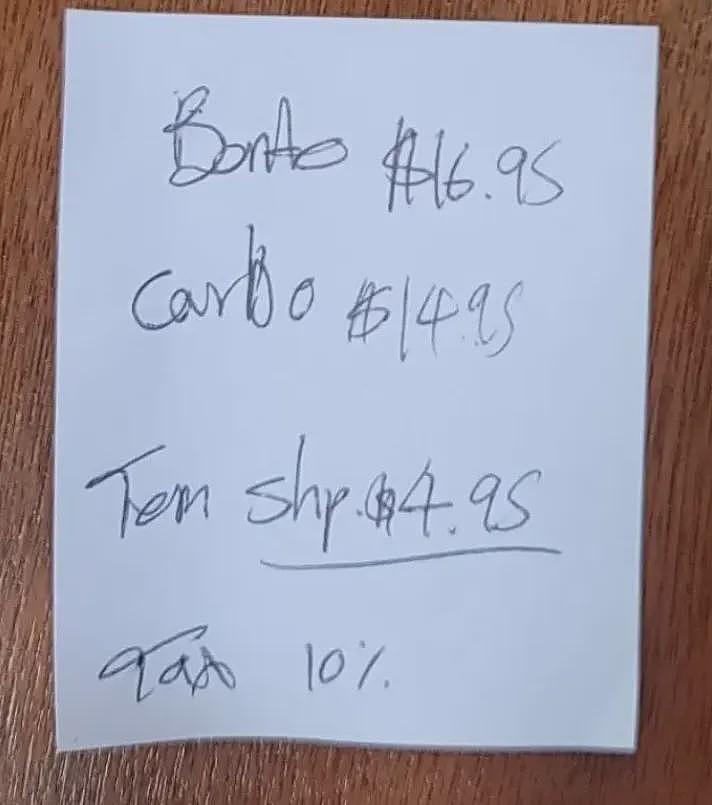 Bento $16.95
Carbo $14.95
Tem shp. $4.95
Tax 10%